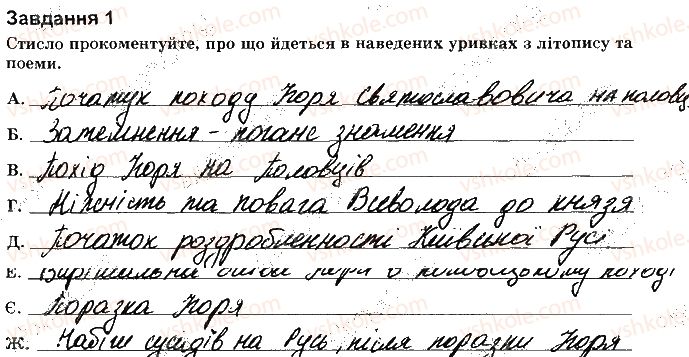 Завдання 1
Стисло прокоментуйте, про що йдеться в наведених уривках з літопису та
поеми.
А. Початук походу Ігоря Святославовича на половц
Б. Затемнення - погане знамення
В. Похід Ігоря на Половців
Г. Ніжність та повага Всеволода до князя
Д. Початок роздробленності Київської Русі
Е. поході
Є. Поразка Ігоря
Ж. Набіги сусідів на Русь, після поразки Ігоря